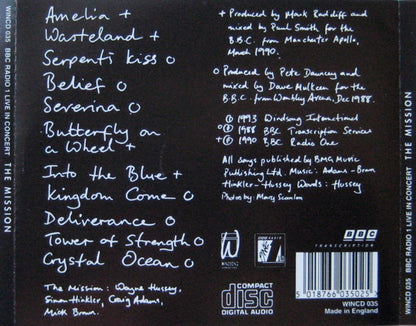 WINCD 035
BBC RADIO 1 LIVE IN CONCERT
THE MISSION
Amelia +
Wasteland +
Serpents Kiss o
Belief o
Severina o
Butterfly on
a Wheel +
Into the Blue +
Kingdom Come o
Deliverance o
Tower of Strength o
Crystal Ocean o
The Mission: Wayne Hussey,
Simon Hinkler, Craig Adams,
Mick Brown.
+ Produced by Mark Radcliff and
mixed by Paul Smith for the
B.B.C. from Manchester Apollo,
March 1990.
o Produced by Pete Dauncey and
mixed by Dave Mulkeen for the
B.B.C. from Wembley Arena, Dec 1988.
℗ 1993 Windsong International
o ℗ 1988 BBC Transcription Services
+ ℗ 1990 BBC Radio One
All songs published by BMG Music
Publishing Ltd. Music: Adams-Brown
Hinkler-Hussey Words: Hussey
Photos by Mary Scanlon
WINDSONG
BBC
TRANSCRIPTION
COMPACT
disc
DIGITAL AUDIO
5 018766 035025
WINCD 035
Made in England
WINCD 035
BBC RADIO 1 LIVE IN CONCERT
THE MISSION